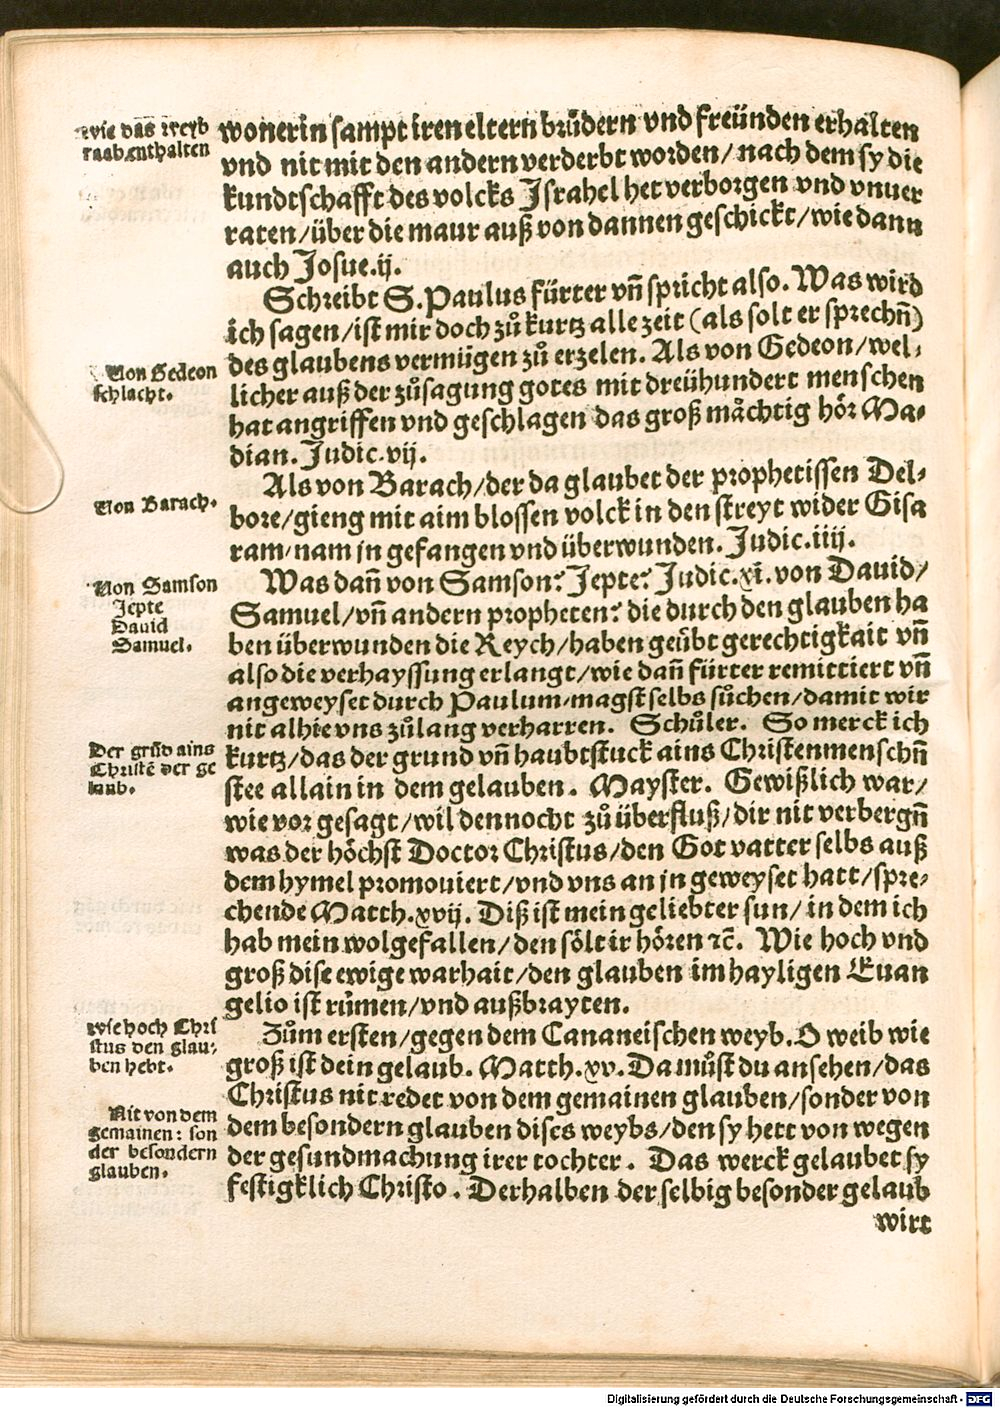 wie das weyb
raab enthalten
wonerin sampt iren eltern brůdern vnd freünden erhalten
vnd nit mit den andern verderbt worden/ nach dem sy die
kundtschafft des volcks Israhel het verborgen vnd vnuer
raten/über die maur auß von dannen geschickt/wie dann
auch Josue.ij.
Schreibt S.Paulus fürter vñ spricht also. Was wird
ich sagen/ist mir doch zů kurtz alle zeit (als solt er sprechñ)
Von Gedeon
schlacht.
des glaubens vermügen zů erzelen. Als von Gedeon/wel⸗
licher auß der zůsagung gotes mit dreühundert menschen
hat angriffen vnd geschlagen das groß mächtig hör Ma⸗
dian. Judic.vij.
Von Barach.
Als von Barach/der da glaubet der prophetissen Del⸗
bore/gieng mit aim blossen volck in den streyt wider Sisa
ram/nam jn gefangen vnd überwunden. Judic.iiij.
Von Samson
Jepte
Dauid
Samuel.
Was dañ von Samson? Jepte? Judic.xi.von Dauid/
Samuel/vñ andern propheten? die durch den glauben ha
ben überwunden die Reych/haben geübt gerechtigkait vñ
also die verhayssung erlangt/wie dañ fürter remittiert vñ
angeweyset durch Paulum/magst selbs sůchen/damit wir
nit alhie vns zůlang verharren. Schůler. So merck ich
Der grũd ains
Christẽ der ge
laub.
kurtz/das der grund vñ haubtstuck ains Christenmenschñ
stee allain in dem gelauben. Mayster. Gewißlich war/
wie vor gesagt/wil dennocht zů überfluß/dir nit verbergñ
was der höchst Doctor Christus/den Got vatter selbs auß
dem hymel promouiert/vnd vns an jn geweyset hatt/spre⸗
chende Matth.xvij. Diß ist mein geliebter sun/ in dem ich
hab mein wolgefallen/den sölt ir hören ꝛc̃. Wie hoch vnd
groß dise ewige warhait/den glauben im hayligen Euan
gelio ist růmen/vnd außbrayten.
wie hoch Chri
stus den glau⸗
ben hebt.
Zům ersten/gegen dem Cananeischen weyb. O weib wie
groß ist dein gelaub. Matth.xv. Da můst du ansehen/das
Christus nit redet von dem gemainen glauben/sonder von
Nit von dem
gemainen: son
der besondern
glauben.
dem besondern glauben dises weybs/den sy hett von wegen
der gesundmachung irer tochter. Das werck gelaubet sy
festigklich Christo. Derhalben der selbig besonder gelaub
wirt
Digitalisierung gefördert durch die Deutsche Forschungsgemeinschaft - DFG